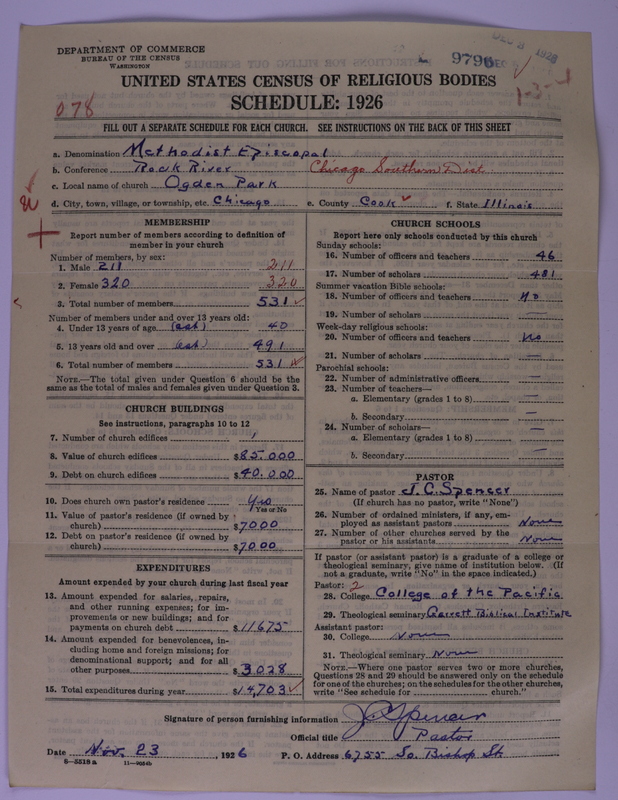 DEPARTMENT OF COMMERCE
BUREAU OF THE CENSUS
WASHINGTON
9796
DEC 8 1928
UNITED STATES CENSUS OF RELIGIOUS BODIES
SCHEDULE: 1926
078
1-3-4
FILL OUT A SEPARATE SCHEDULE FOR EACH CHURCH. SEE INSTRUCTIONS ON THE BACK OF THIS SHEET
a. Denomination Methodist Episcopal
b. Conference Rock River Chicago Southern Dist
c. Local name of church Ogden Park
d. City, town, village, or township, etc. Chicago e. County Cook f. State Illinois
MEMBERSHIP
Report number of members according to definition of
member in your church
Number of members, by sex:
1. Male 211 211
2. Female 320 320
3. Total number of members 531
Number of members under and over 13 years old:
4. Under 13 years of age (est) 40
5. 13 years old and over (est) 491
6. Total number of members 531
NOTE.—The total given under Question 6 should be
the same as the total of males and females given under Question 3.
CHURCH BUILDINGS
See instructions, paragraphs 10 to 12
7. Number of church edifices 1
8. Value of church edifices $85.000
9. Debt on church edifices $40.000
10. Does church own pastor's residence Yes
Yes or No
11. Value of pastor's residence (if owned by
church) $7000
12. Debt on pastor's residence (if owned by
church) $7000
EXPENDITURES
Amount expended by your church during last fiscal year
13. Amount expended for salaries, repairs,
and other running expenses; for im-
provements or new buildings; and for
payments on church debt $11675
14. Amount expended for benevolences, in-
cluding home and foreign missions; for
denominational support; and for all
other purposes $3.028
15. Total expenditures during year $14,703
CHURCH SCHOOLS
Report here only schools conducted by this church
Sunday schools:
16. Number of officers and teachers 46
17. Number of scholars 481
Summer vacation Bible schools:
18. Number of officers and teachers No
19. Number of scholars —
Week-day religious schools:
20. Number of officers and teachers No
21. Number of scholars —
Parochial schools:
22. Number of administrative officers —
23. Number of teachers—
a. Elementary (grades 1 to 8) —
b. Secondary —
24. Number of scholars—
a. Elementary (grades 1 to 8) —
b. Secondary —
PASTOR
25. Name of pastor J. C. Spencer
(If church has no pastor, write "None")
26. Number of ordained ministers, if any, em-
ployed as assistant pastors None
27. Number of other churches served by the
pastor or his assistants None
If pastor (or assistant pastor) is a graduate of a college or
theological seminary, give name of institution below. (If
not a graduate, write "No" in the space indicated.)
Pastor: 2
28. College College of the Pacific
29. Theological seminary Garrett Biblical Institute
Assistant pastor:
30. College None
31. Theological seminary None
NOTE.—Where one pastor serves two or more churches,
Questions 28 and 29 should be answered only on the schedule
for one of the churches; on the schedules for the other churches,
write "See schedule for church."
Signature of person furnishing information J. C. Spencer
Official title Pastor
Date Nov. 23, 1926 P. O. Address 6755 So. Bishop St.
8—5518 a 11—9554b